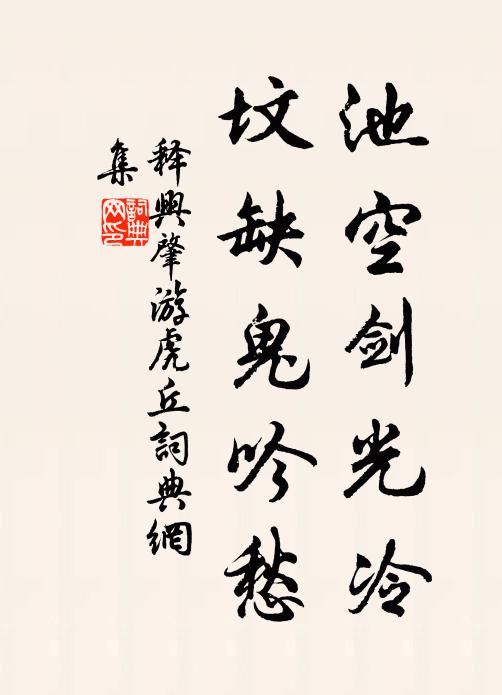 池空剑光冷
坟缺鬼吟愁
释興肇游虎丘詞典網
集
詞典网印